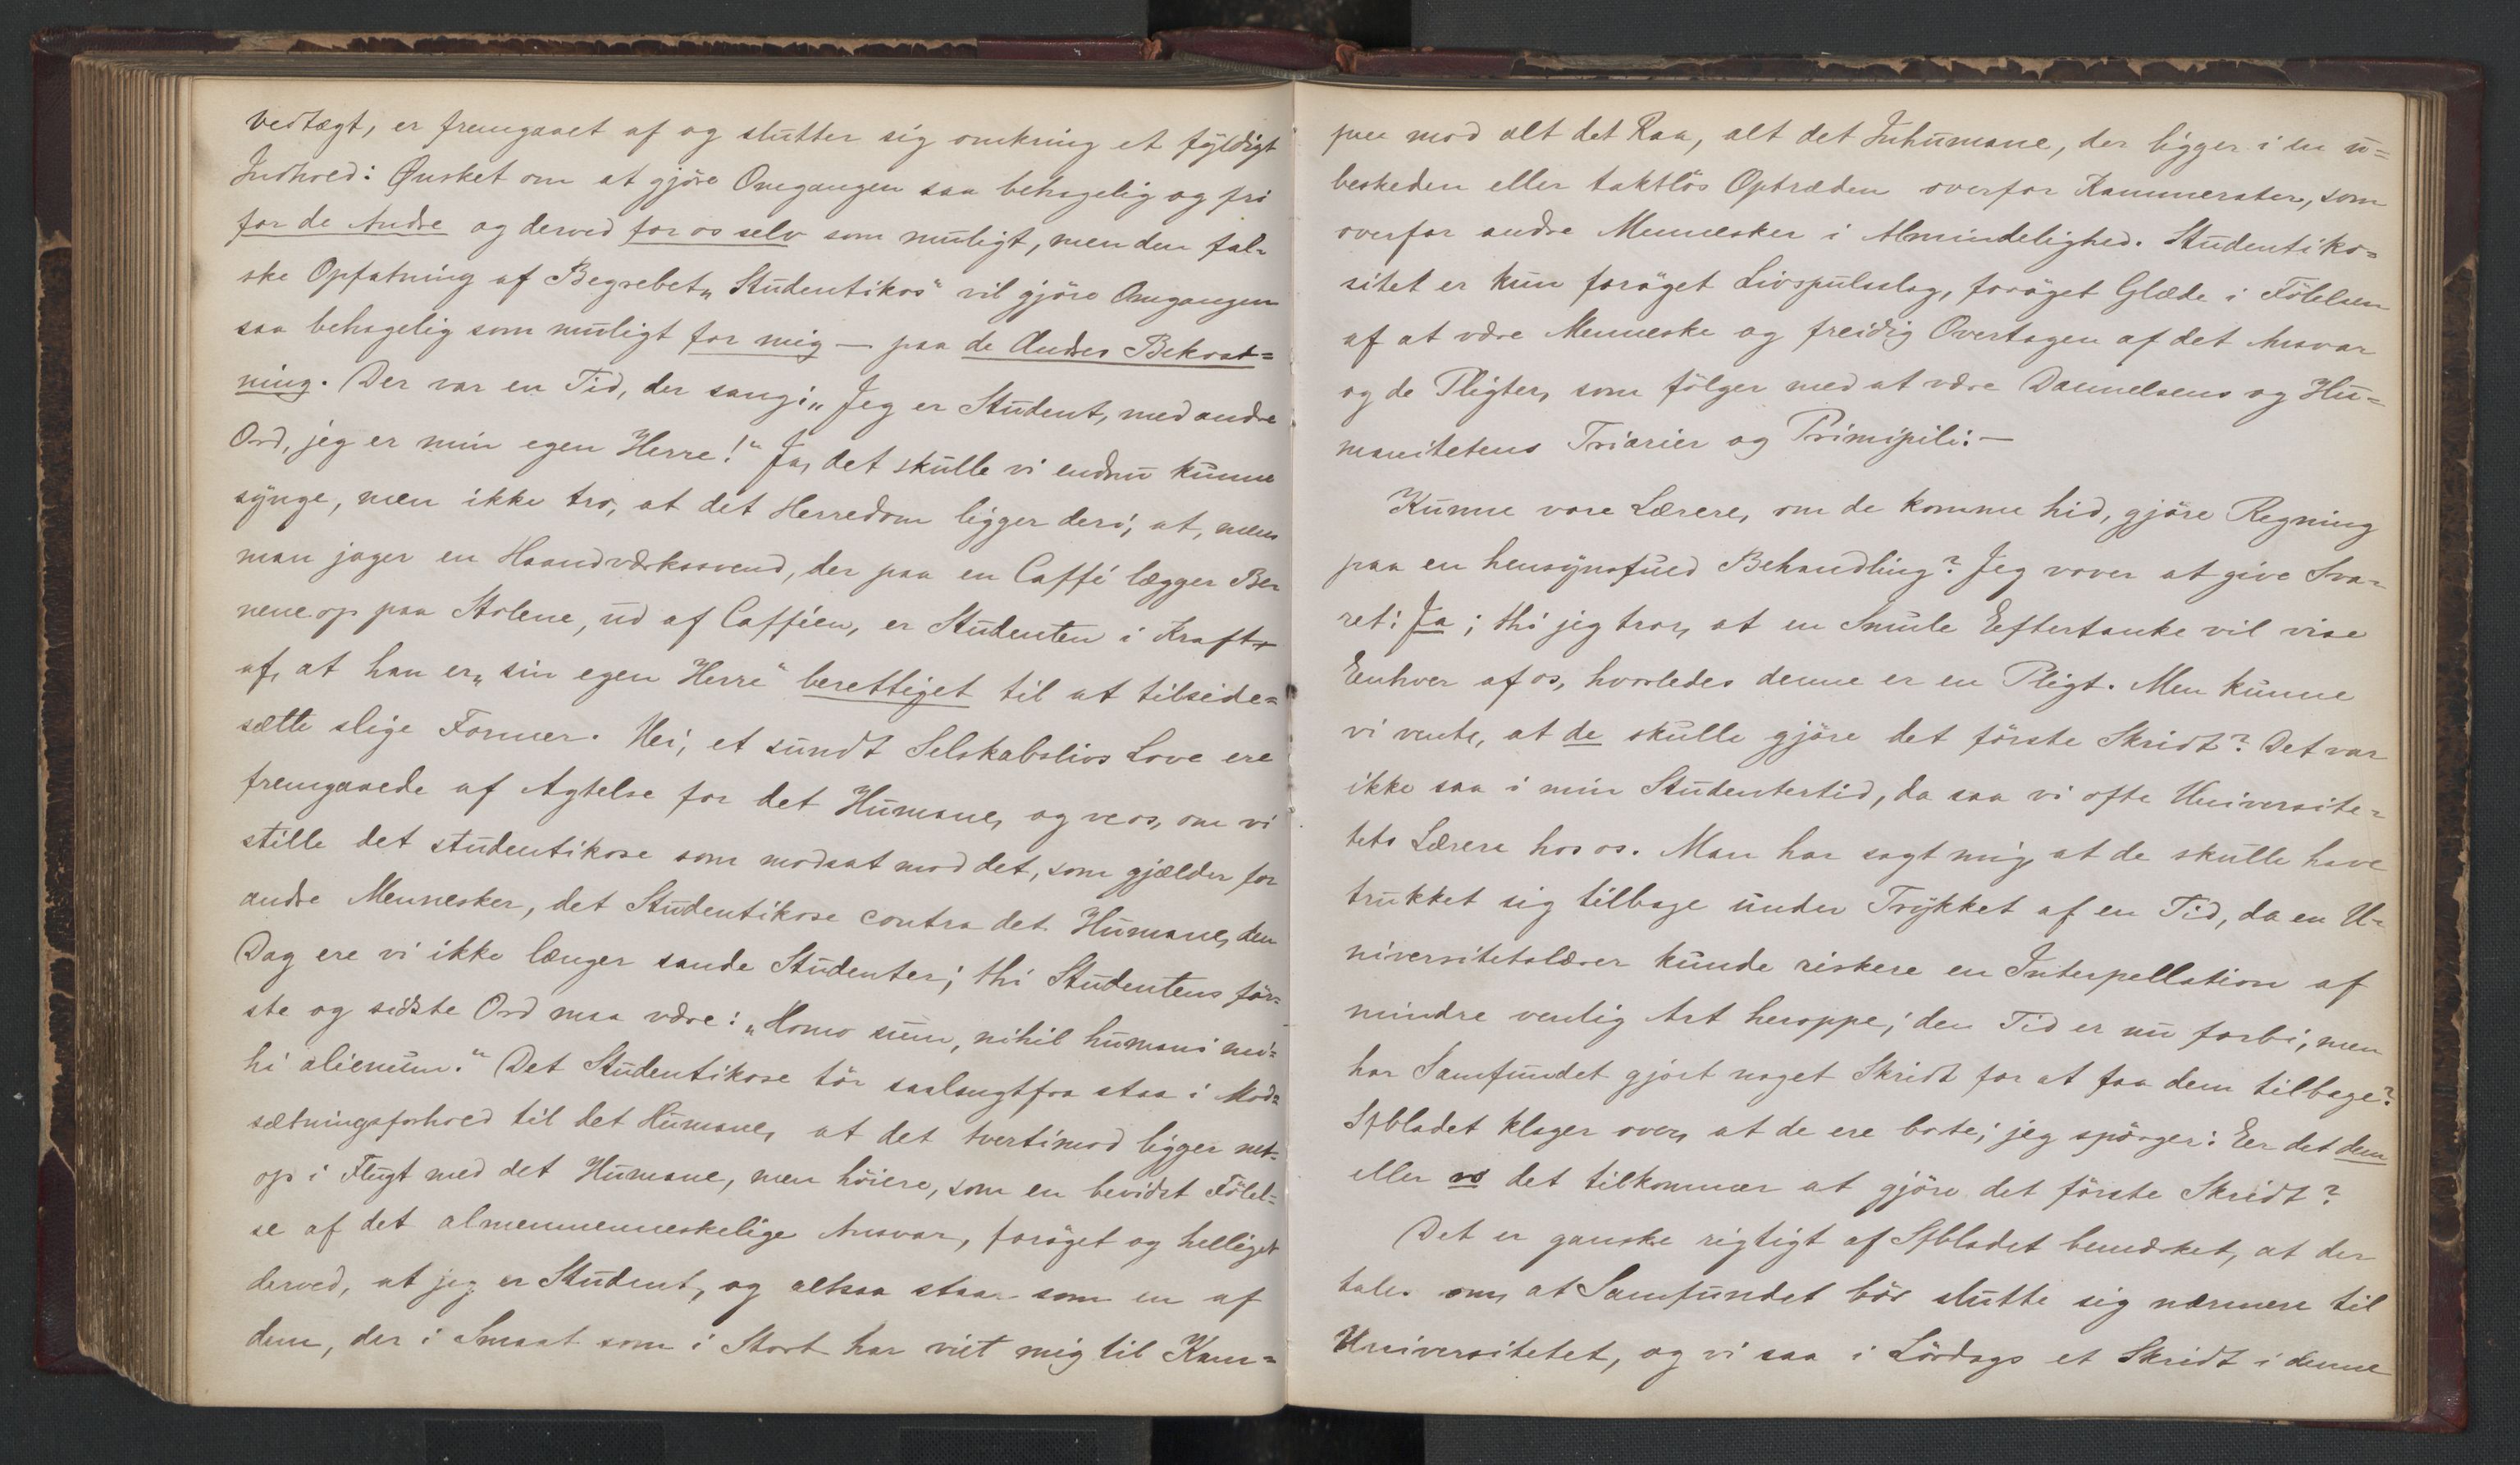 Vedtægt, er fremgaaet af og slutter sig omkring et fyldigt
Indhold: Ønsket om at gjöre Omgangen saa behagelig og fri
for de Andre og derved for os selv som muligt, men den fal-
ske Opfatning af Begrebet „Studentikos“ vil gjöre Omgangen
saa behagelig som muligt for mig — paa de Andres Bekost=
ning. Der var en Tid, der sang: „Jeg er Student, med andre
Ord, jeg er min egen Herre!“ Ja, det skulle vi endnu kunne
synge, men ikke tro, at det Herredom ligger deri, at, mens
man jager en Haandværkssvend, der paa en Caffé lægger Be-
nene op paa Stolene, ud af Cafféen, er Studenten i Kraft
af, at han er „sin egen Herre“ berettiget til at tilside=
sætte slige Former. Nei, et sundt Selskabslivs Love ere
fremgaaede af Agtelse for det Humane, og ve os, om vi
stille det studentikose som modsat mod det, som gjælder for
andre Mennesker, det Studentikose contra det Humane, den
Dag ere vi ikke længer sande Studenter; thi Studentens för=
ste og sidste Ord maa være: „Homo sum, nihil humani mi=
hi alienum.“ Det Studentikose tör saalangtfra staa i Mod=
sætningsforhold til det Humane, at det tvertimod ligger net=
op i Flugt med det Humane, men höiere, som en bevidst Fölel=
se af det almenmenneskelige Ansvar, foröget og helliget
derved, at jeg er Student, og altsaa staar som en af
dem, der i Smaat som i Stort har viet mig til Kam=
pen mod alt det Raa, alt det Inhumane, der ligger i en u=
beskeden eller taktlös Optræden overfor Kammerater, som
overfor andre Mennesker i Almindelighed. Studentiko=
sitet er kun foröget Livspulsslag, foröget Glæde i Fölelsen
af at være Menneske og freidig Overtagen af det Ansvar
og de Pligter, som fölger med at være Dannelsens og Hu=
manitetens Triarier og Primipili: —
Kunne vore Lærere, om de komme hid, gjöre Regning
paa en hensynsfuld Behandling? Jeg vover at give Sva-
ret: Ja; thi jeg tror, at en Smule Eftertanke vil vise
Enhver af os, hvorledes denne er en Pligt. Men kunne
vi vente, at de skulle gjöre det förste Skridt? Det var
ikke saa i min Studentertid, da saa vi ofte Universite-
tets Lærere hos os. Man har sagt mig, at de skulle have
trukket sig tilbage under Trykket af en Tid, da en U-
niversitetslærer kunde riskere en Interpellation af
mindre venlig Art heroppe; den Tid er nu forbi, men
har Samfundet gjort noget Skridt for at faa dem tilbage?
Sfbladet klager over, at de ere borte; jeg spörger: Er det dem
eller os det tilkommer at gjöre det förste Skridt?
Det er ganske rigtigt af Sfbladet bemærket, at der
tales om, at Samfundet bör slutte sig nærmere til
Universitetet, og vi saa i Lördags et Skridt i denne